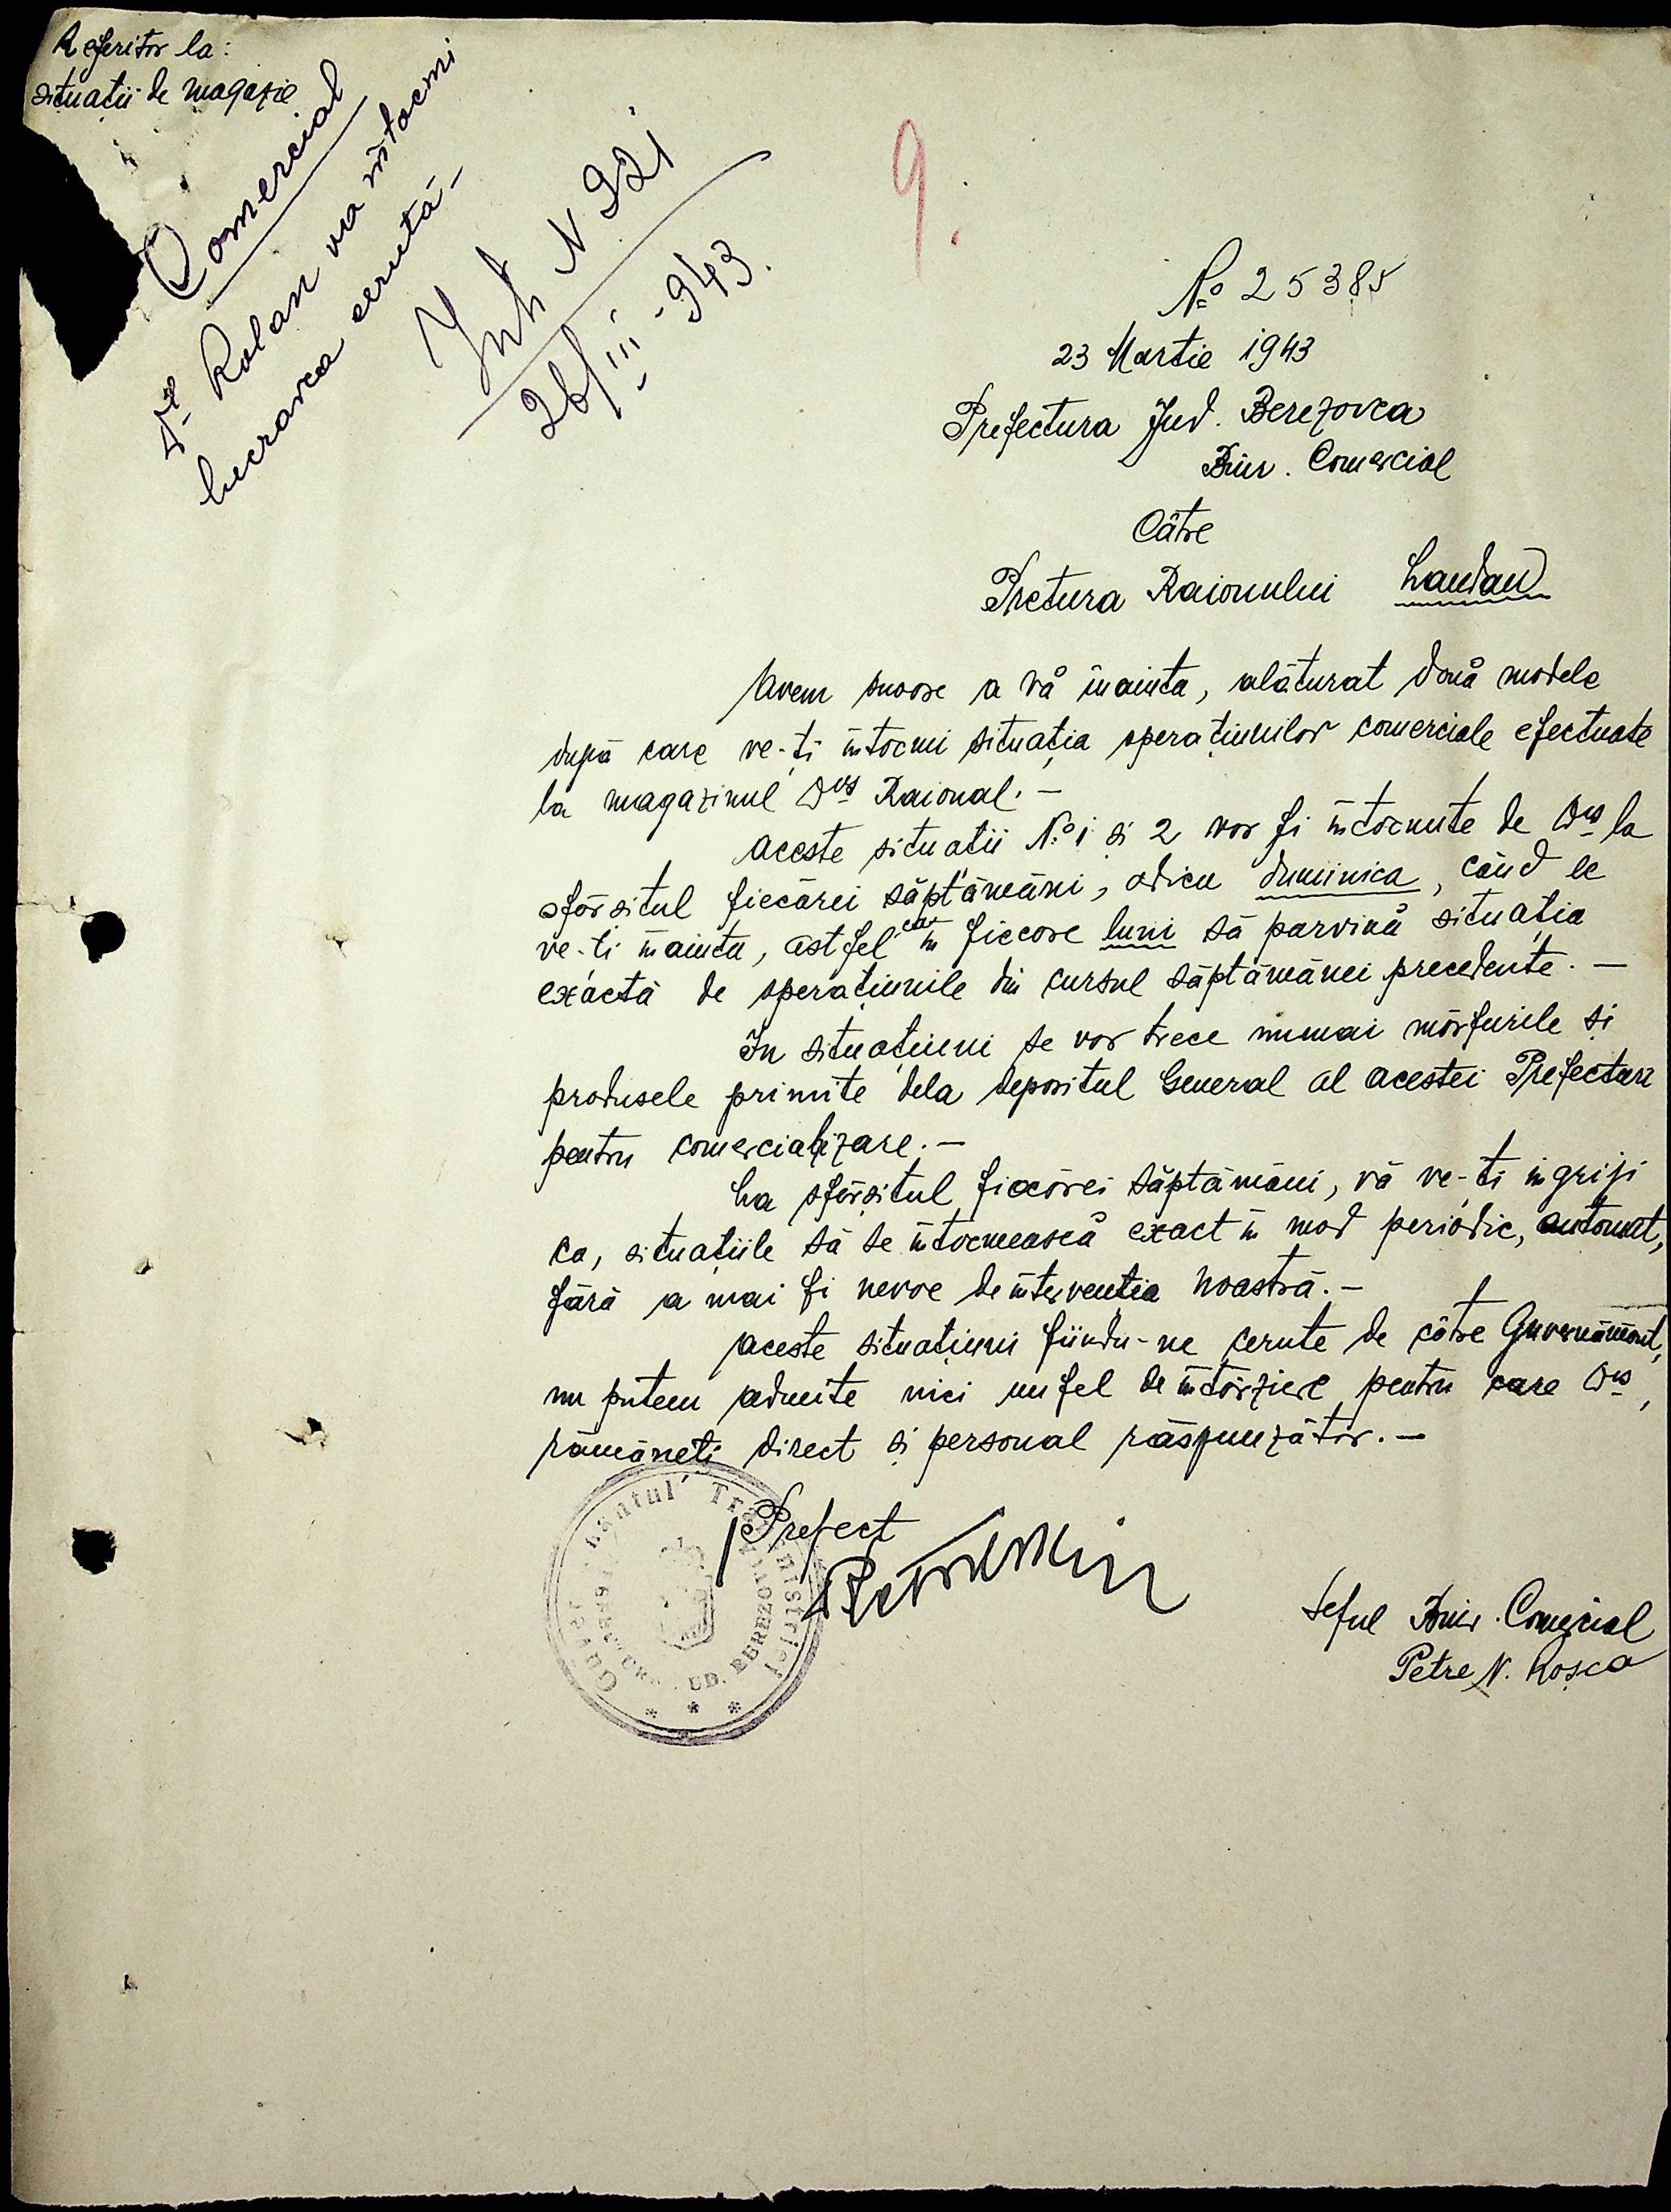 Referitor la:
situații de magazie
Comercial
Dl Rolan va întocmi
lucrarea cerută -
Int N 921
26/III-943.
9.
No 25385
23 Martie 1943
Prefectura Jud. Berezovca
Biur. Comercial
Către
Pretura Raionului Landau
Avem onoare a vă inainta, alăturat două modele
după care ve-ți intocmi situația operațiunilor comerciale efectuate
la magazinul Dvs Raional. -
Aceste situatii No 1 și 2 vor fi intocmite de Dvs la
sfârsitul fiecărei săptămâni, adica duminica, când le
ve-ti inainta, astfel ca in fiecare luni să parvină situația
exactă de operațiunile din cursul săptămânei precedente. -
In situațiuni se vor trece numai mărfurile și
produsele primite dela depositul General al acestei Prefecturi
pentru comercializare. -
La sfârșitul fiecărei săptămâni, vă ve-ți ingriji
ca, situațiile să se intocmească exact in mod periodic, automat,
fără a mai fi nevoe de interventia noastră. -
Aceste situațiuni fiindu-ne cerute de către Guvernământ,
nu putem admite nici un fel de intârziere pentru care Dvs,
rămâneți direct și personal răspunzător. -
Prefect
Seful Biur. Comercial
Petre N. Roșca